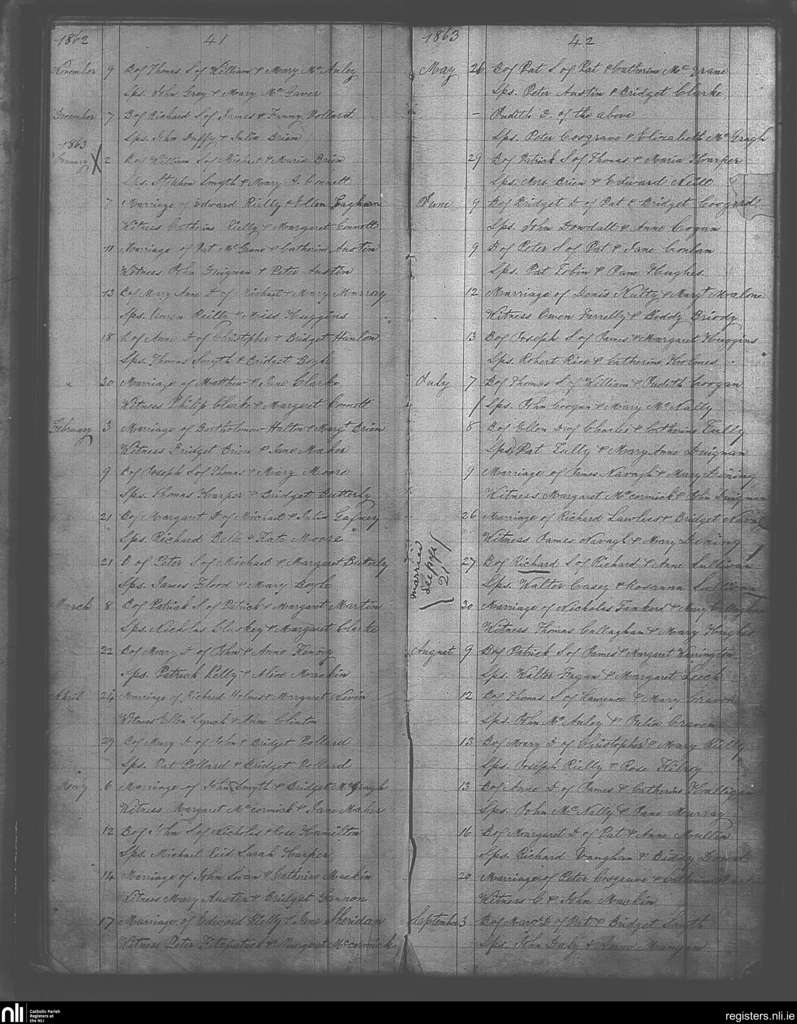 1862 41
November 9 B of Thomas S of William & Mary McAuley
Sps. John Grey & Mary McGaver
December 7 B of Richard S of James & Fanny Pollard
Sps. John Duffy & Julia Brien
1863
January X 2 B of William S of Michael & Maria Brien
Sps. Stephen Smyth & Mary A. Connell
7 Marriage of Edward Reilly & Ellen Gaghran
Witness Catherine Reilly & Margaret Connell
11 Marriage of Pat McGrane & Catherine Austin
Witness John Guignan & Peter Austin
13 B of Mary Anne D of Michael & Mary Murray
Sps. Owen Reilly & Miss Huggins
18 B of Anne D of Christopher & Bridget Hanlon
Sps. Thomas Smyth & Bridget Boyle
" 20 Marriage of Matthew & Jane Clarke
Witness Philip Clarke & Margaret Connell
February 3 Marriage of Bartholomew Halton & Margt Brien
Witness Bridget Brien & Jane Maher
9 B of Joseph S of Thomas & Mary Moore
Sps. Thomas Harper & Bridget Butterly
21 B of Margaret D of Michael & Julia Gafney
Sps. Richard & Kate Moore
21 B of Peter S of Michael & Margaret Butterly
Sps. James Flood & Mary Boyle
March 8 B of Patrick S of Patrick & Margaret Martin
Sps. Nicholas Cluskey & Margaret Clarke
22 B of Mary D of John & Anne Kenny
Sps. Patrick Kelly & Alice Mackin
April 24 Marriage of Richard Holmes & Margaret
Witness Ellen Lynch & Anne Clinton
29 B of Mary D of John & Bridget Pollard
Sps. Pat Pollard & Bridget Pollard
May 6 Marriage of John Smyth & Bridget McGragh
Witness Margaret McCormick & Jane Maher
12 B of John S of Nicholas & Rose Hamilton
Sps. Michael Reid Sarah Harper
14 Marriage of John Swan & Catherine Mackin
Witness Mary Austin & Bridget Gannon
17 Marriage of Edward Kelly & Jane Sheridan
Witness Peter Fitzpatrick & Margaret McCormick
1863 42
May 26 B of Pat S of Pat & Catherine McGrane
Sps. Peter Austin & Bridget Clarke
- Judith D of the above
Sps. Peter Cosgrave & Elizabeth McGragh
29 B of Patrick S of Thomas & Maria Harper
Sps. Mrs Brien & Edward Neill
June 9 B of Bridget D of Pat & Bridget
Sps. John Dowdall & Anne Cogan
9 B of Peter S of Pat & Jane Conlan
Sps. Pat Tobin & Jane Hughes
12 Marriage of Denis Nulty & Margt Malone
Witness Owen Farrelly & Biddy Briody
13 B of Joseph S of James & Margaret Huggins
Sps. Robert Rice & Catherine Holmes
July 7 B of Thomas S of William & Judith Coogan
Sps. John Coogan & Mary McNally
8 B of Ellen D of Charles & Catherine Tully
Sps. Pat Tully & Mary Anne Duignan
9 Marriage of James Navagh & Mary
Witness Margaret McCormick & John Duignan
26 Marriage of Richard Lawless & Bridget Navagh
Witness James Navagh & Mary
married
see page
2
27 B of Richard S of Richard & Anne Sullivan
Sps. Walter Casey & Rosanna Sullivan
30 Marriage of Nicholas & Mary Callaghan
Witness Thomas Callaghan & Mary Hughes
August 9 B of Patrick S of James & Margaret
Sps. Walter Fagan & Margaret Leech
12 B of Thomas S of Lawrence & Mary Craven
Sps. John McAuley & Julia Craven
13 B of Mary D of Christopher & Mary Reilly
Sps. Joseph Reilly & Rose
13 B of Anne D of James & Catherine Halligan
Sps. John McNally & Jane Murray
16 B of Margaret D of Pat & Anne Moulton
Sps. Richard Vaughan & Biddy
20 Marriage of Peter Cosgrave &
Witness C & John Mackin
September 3 B of Mary D of Pat & Bridget Smyth
Sps. John Daly & Mangan
nli Catholic Parish Registers at the NLI
registers.nli.ie